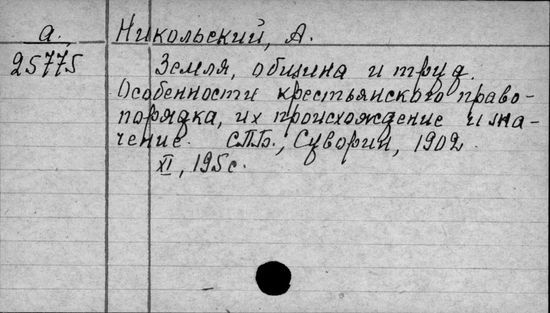 а. Никольский, А.
25775 Земля, община и труд.
Особенности крестьянского право-
порядка, их происхождение и зна-
чение. СПБ., Суворин, 1902.
XI, 195 с.